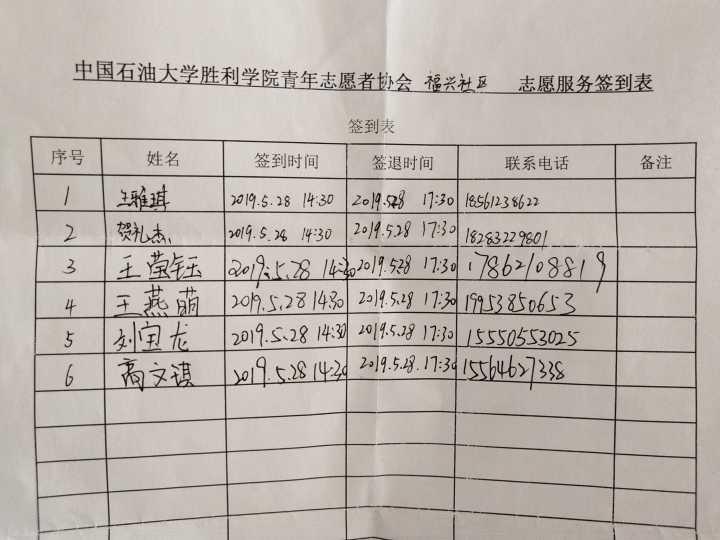 中国石油大学胜利学院青年志愿者协会 福兴社区 志愿服务签到表
签到表
序号 姓名 签到时间 签退时间 联系电话 备注
1 王雅琪 2019.5.28 14:30 2019.5.28 17:30 18561238622
2 贺礼杰 2019.5.28 14:30 2019.5.28 17:30 18283229801
3 王莹钰 2019.5.28 14:30 2019.5.28 17:30 17862108819
4 王燕萌 2019.5.28 14:30 2019.5.28 17:30 19953850653
5 刘宝龙 2019.5.28 14:30 2019.5.28 17:30 15550553025
6 高文琪 2019.5.28 14:30 2019.5.28.17:30 15564627338